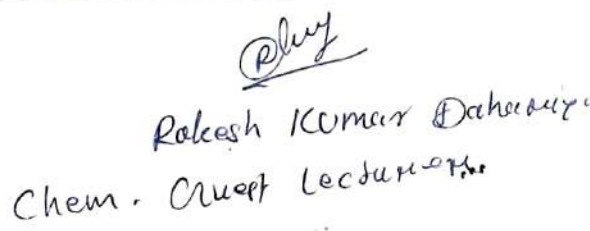 Rakesh Kumar Dahariya
Chem. Guest Lecturer